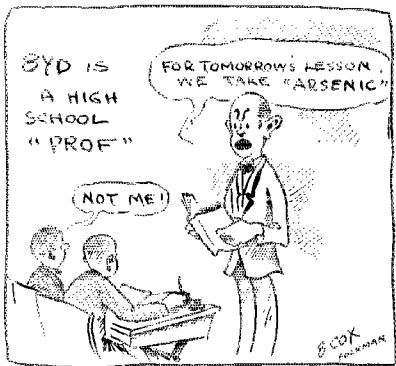 SYD IS
A HIGH
SCHOOL
"PROF"
FOR TOMORROW'S LESSON
WE TAKE "ARSENIC"
NOT ME!
COX